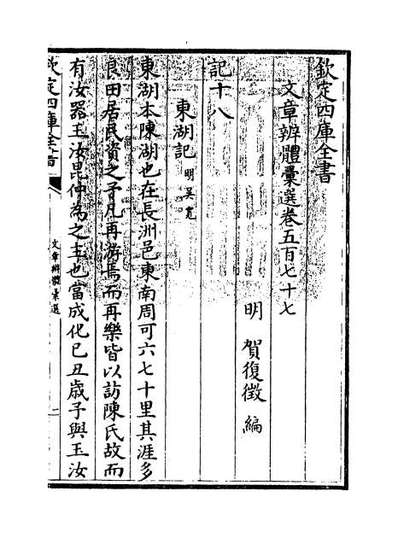 欽定四庫全書
文章辨體彚選卷五百七十七
明 賀復徵 編
記十八
東湖記 明吳寛
東湖本陳湖也在長洲邑東南周可六七十里其涯多
良田居民資之予凡再游焉而再樂皆以訪陳氏故而
有汝器玉汝昆仲為之主也當成化己丑歲予與玉汝
欽定四庫全書
文章辨體彚選
一